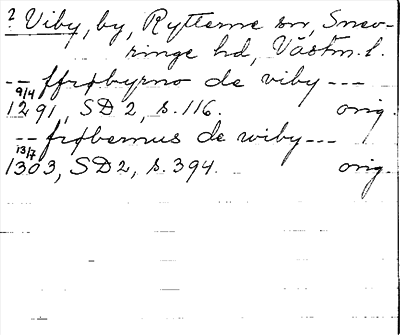 ? Viby, by, Rytterne sn, Snev-
ringe hd, Västm. l.
-- ffrøbyrno de viby ---
9/4
1291, SD 2, s. 116. orig.
-- frøbernus de wiby ---
13/7
1303, SD 2, s. 394. orig.